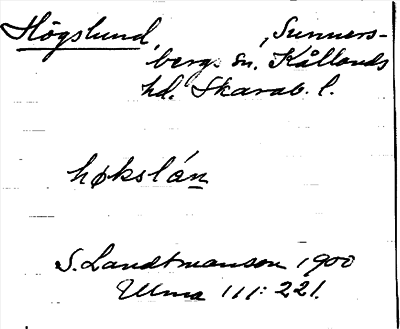 Högslund, Sunners-
bergs sn. Kållands
hd. Skarab. l.
høkslán
S. Landtmanson 1900
Ulma 111: 221.